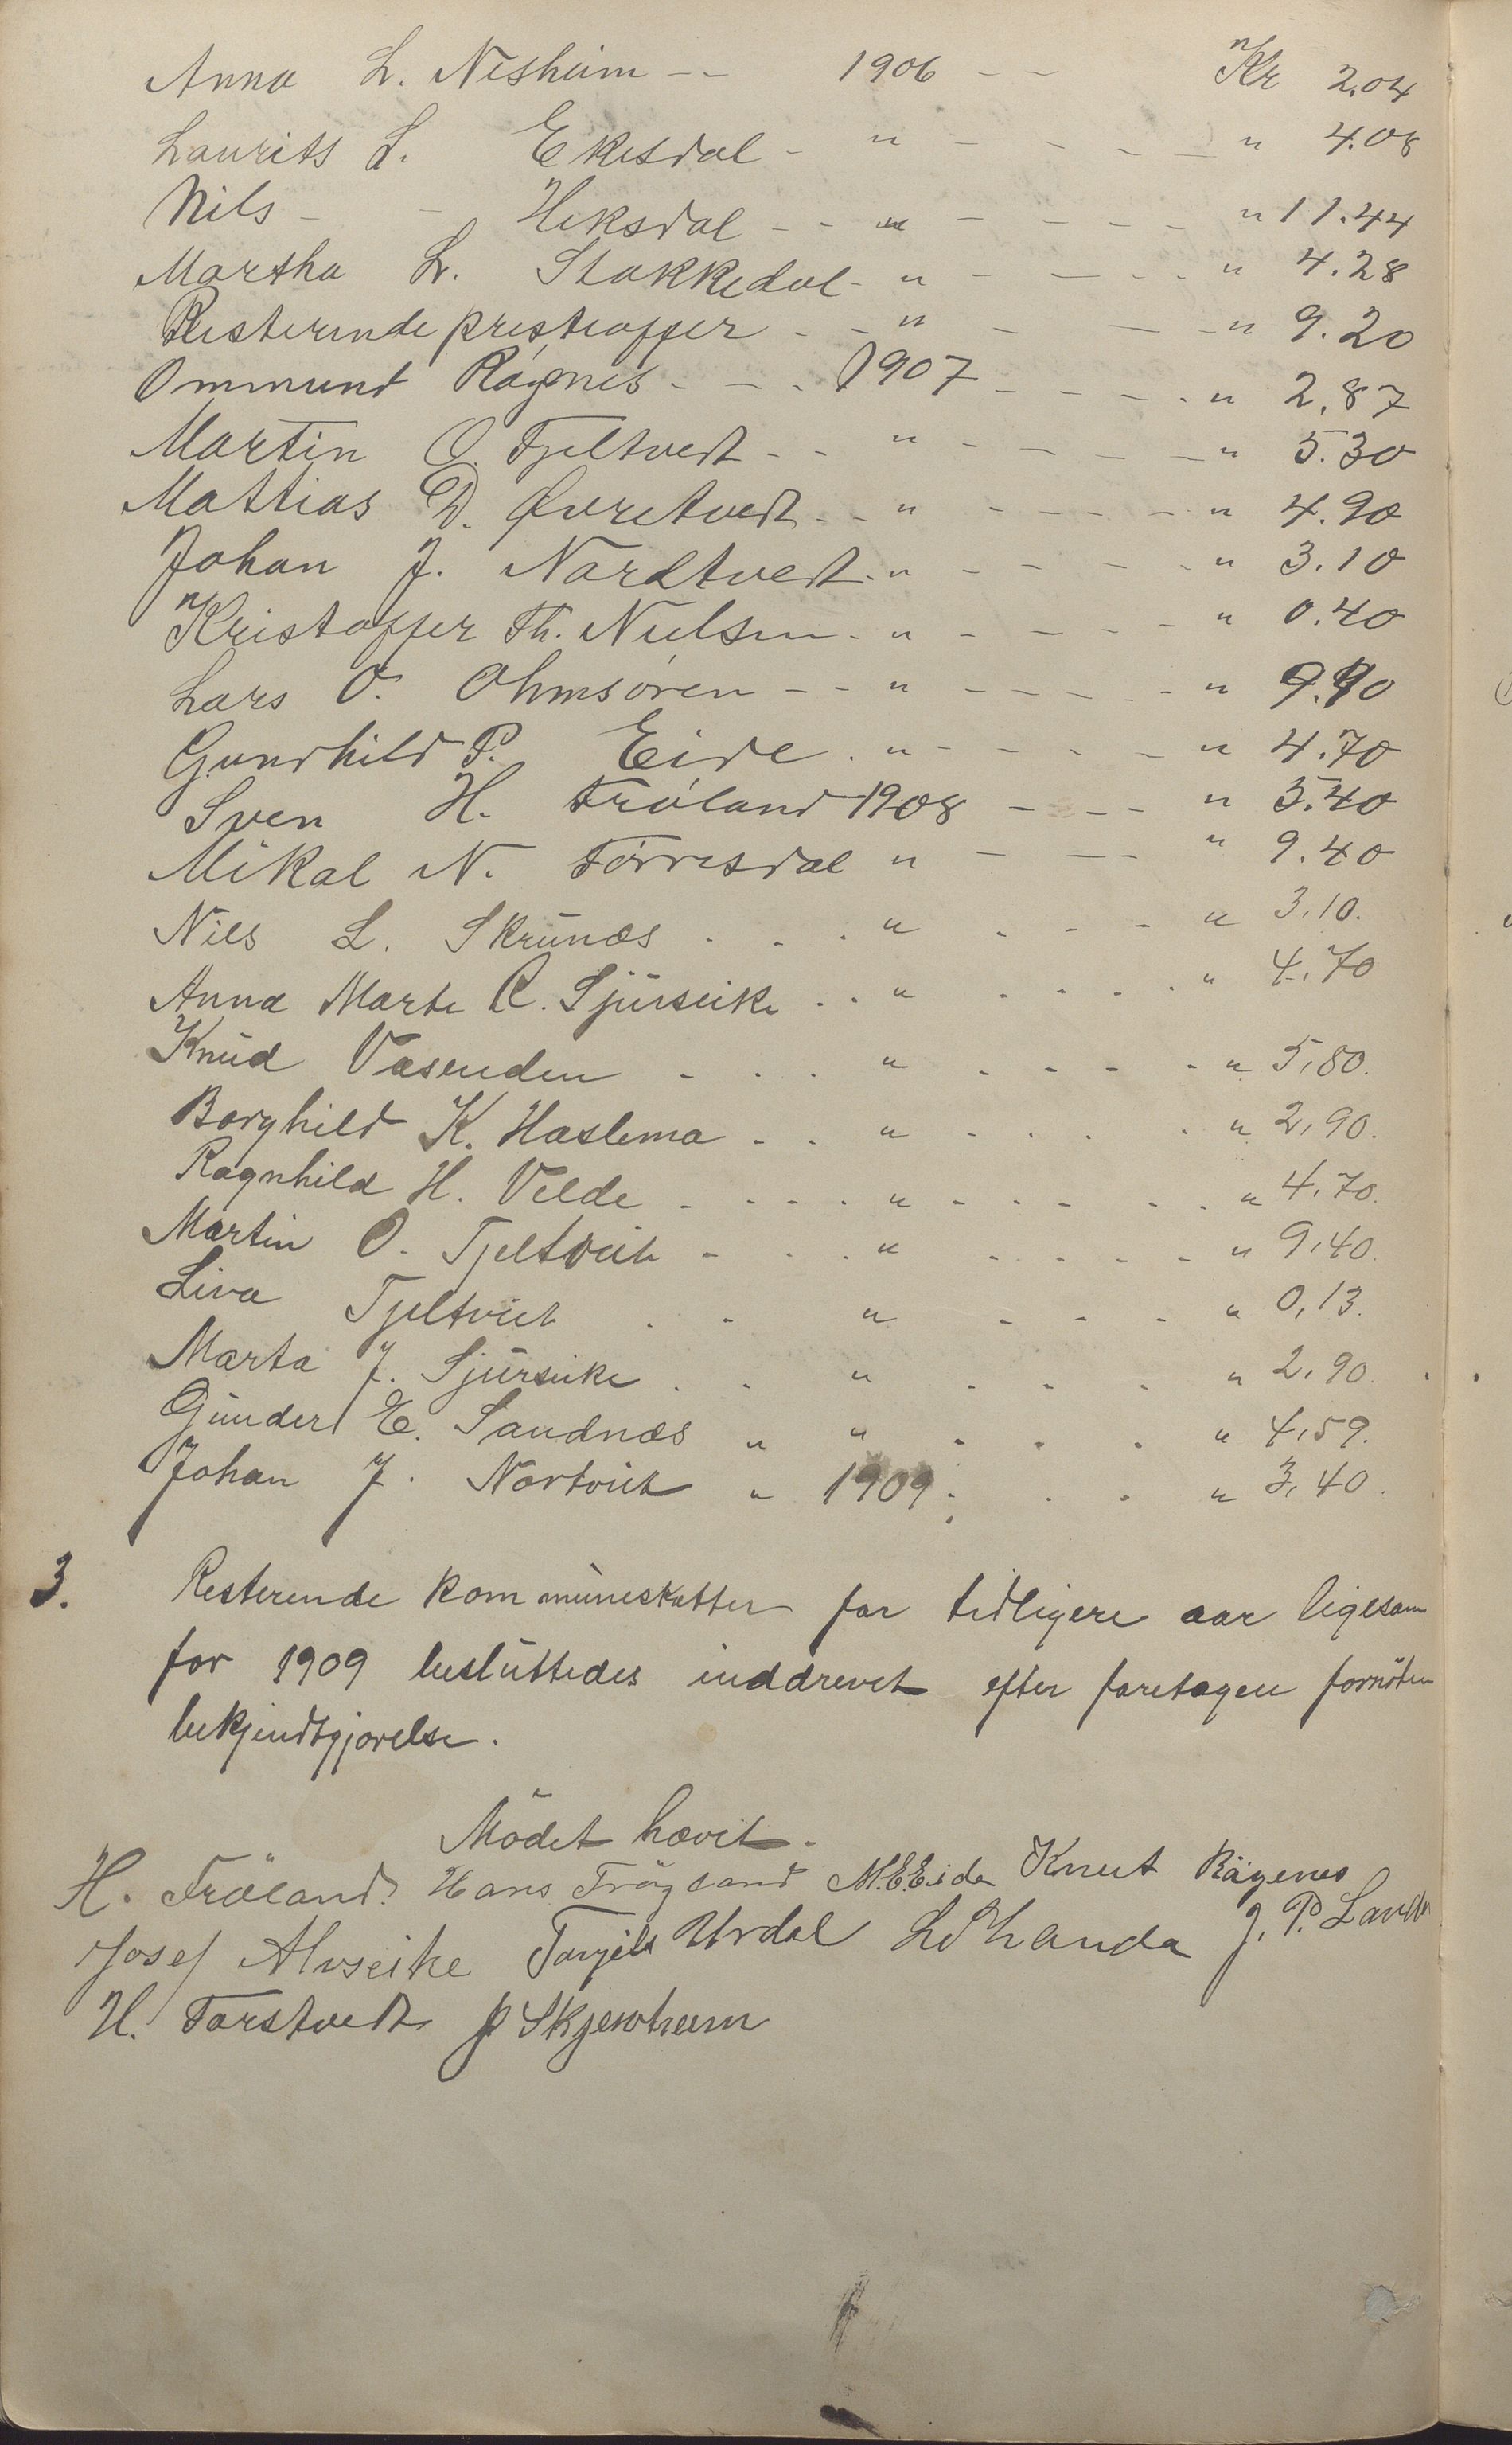 Anna L. Nesheim - - 1906 - - Kr 2.04
Laurits L. Ekesdal - " - - - - " 4.08
Nils - - Heksdal - - " - - - - " 11.44
Martha L. Stakkedal - " - - - - " 4.28
Resterende presteoffer - - " - - - " 9.20
Ommund Rágnes - - - 1907 - - - - " 2,87
Martin O. Tjeltvedt - - " - - - - " 5.30
Mattias D. Øvretvedt - - " - - - - " 4.90
Johan J. Nordtvedt - " - - - - " 3.10
Kristoffer Th. Nielsen - " - - - - " 0.40
Lars O. Ohmsóren - - - " - - - - " 9.90
Gunhild P. Eide . " - - - - " 4.70
Sven H. Fróland 1908 - - - " 3.40
Mikal N. Tórresdal " - - - " 9.40
Nils L. Skrunæs . . . " . - - - " 3,10.
Anna Marte R. Sjurseike . . " . . . . " 4.70
Knud Vasenden - . . " . . . . " 5,80.
Borghild K. Haslema . . " . . . . " 2,90.
Ragnhild H. Velde - . . . " - - - - " 4,70.
Martin O. Tjeltveit - . . " . . . . " 9,40.
Liva Tjeltveit . . " . . . " 0,13.
Marta J. Sjurseike . . " . . . " 2,90.
Gunder E. Sandnæs " " . . . " 4,59.
Johan J. Nortveit " 1909. . . " 3,40.
3. Resterende kommuneskatter for tidligere aar ligesom
for 1909 besluttedes inddrevet efter foretagen fornöden
bekjendtgjorelse.
Mödet hævet.
H. Fröland. Hans Frögland M.E.Eide Knut Rägenes
Josef Alvseike Torgils Urdal J. P. Landa
H. Torstvedt Skjeroheim